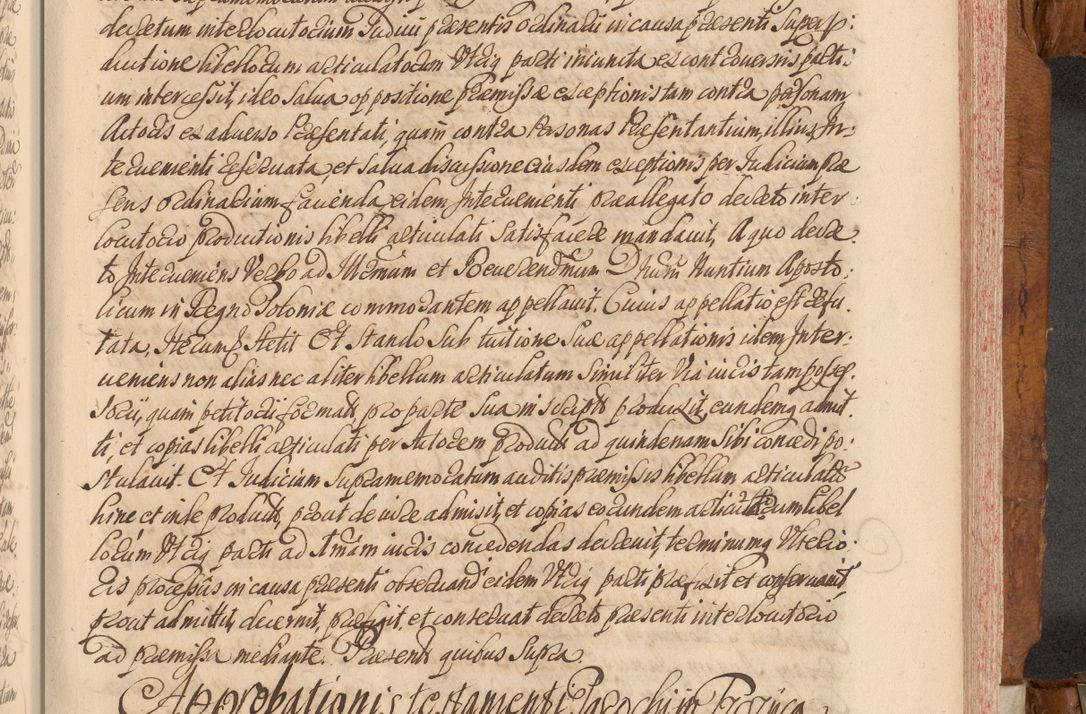 decretum interlocutorium Judicij præsentis Ordinarij in causa præsenti super p:
ductione libellorum articulatorum Utriq parti iniuncta ex controversiis parti:
um intercessit, ideo salva oppositione præmissæ exceptionis tam contra personam
Actoris ex adverso Præsentati, quam contra Personas Præsentantium, illius In:
tervenienti reservata, et salva discussione eiusdem exceptionis per Judicium præ
sens ordinarium facienda, eidem Intervenienti præallegato decreto inter:
locutorio productionis libelli articulati satisfacere mandavit, A quo decre:
to Interveniens Verbo ad Illmum et Reverendmum Dnum Nuntium Aposto:
licum in Regno Poloniæ commorantem appellavit. Cuius appellatio est refu:
tata, stetit Et stando sub tuitione suæ appellationis idem Inter:
veniens non alias nec aliter libellum articulatum similiter Via iuris tam posses:
sorij, quam petitorij format, pro parte sua in scripto produxit, eundemq admit:
ti, et copias libelli articulati per Actorem producti ad quindenam sibi concedi po:
stulavit. Et Judicium supramemoratum auditis præmissis libellum articulat
hinc et inde product, prout de iure admisit, et copias eorundem articulat cum libel
lorum Utriq parti ad Imam iuris concedendas decrevit, terminumq Ulterio:
ris processus in causa præsenti observand eidem Utriq parti præfixit et conservavit,
prout admittit, decernit, præfigit, et conservat decreto præsenti interlocutorio
ad præmissa mediante. Præsent quibus supra.
Approbationis testamenti Parochi in